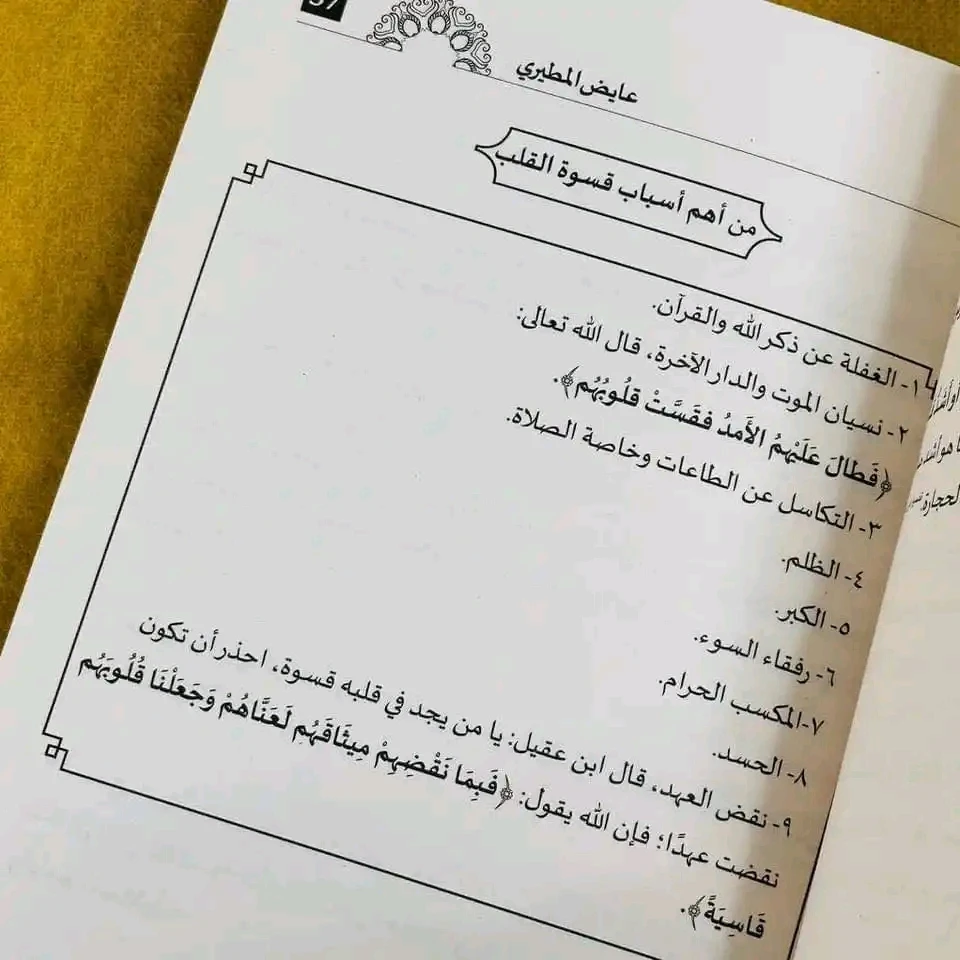 عايض المطيري
من أهم أسباب قسوة القلب
١- الغفلة عن ذكر الله والقرآن.
٢- نسيان الموت والدار الآخرة، قال الله تعالى:
﴿فَطَالَ عَلَيْهِمُ الأَمَدُ فَقَسَتْ قُلُوبُهُم﴾.
٣- التكاسل عن الطاعات وخاصة الصلاة.
٤- الظلم.
٥- الكبر.
٦- رفقاء السوء.
٧-المكسب الحرام.
٨- الحسد.
٩- نقض العهد، قال ابن عقيل: يا من يجد في قلبه قسوة، احذر أن تكون
نقضت عهدًا؛ فإن الله يقول: ﴿فَبِمَا نَقْضِهِمْ مِيثَاقَهُم لَعَنَّاهُمْ وَجَعَلْنَا قُلُوبَهُم
قَاسِيَةً﴾.